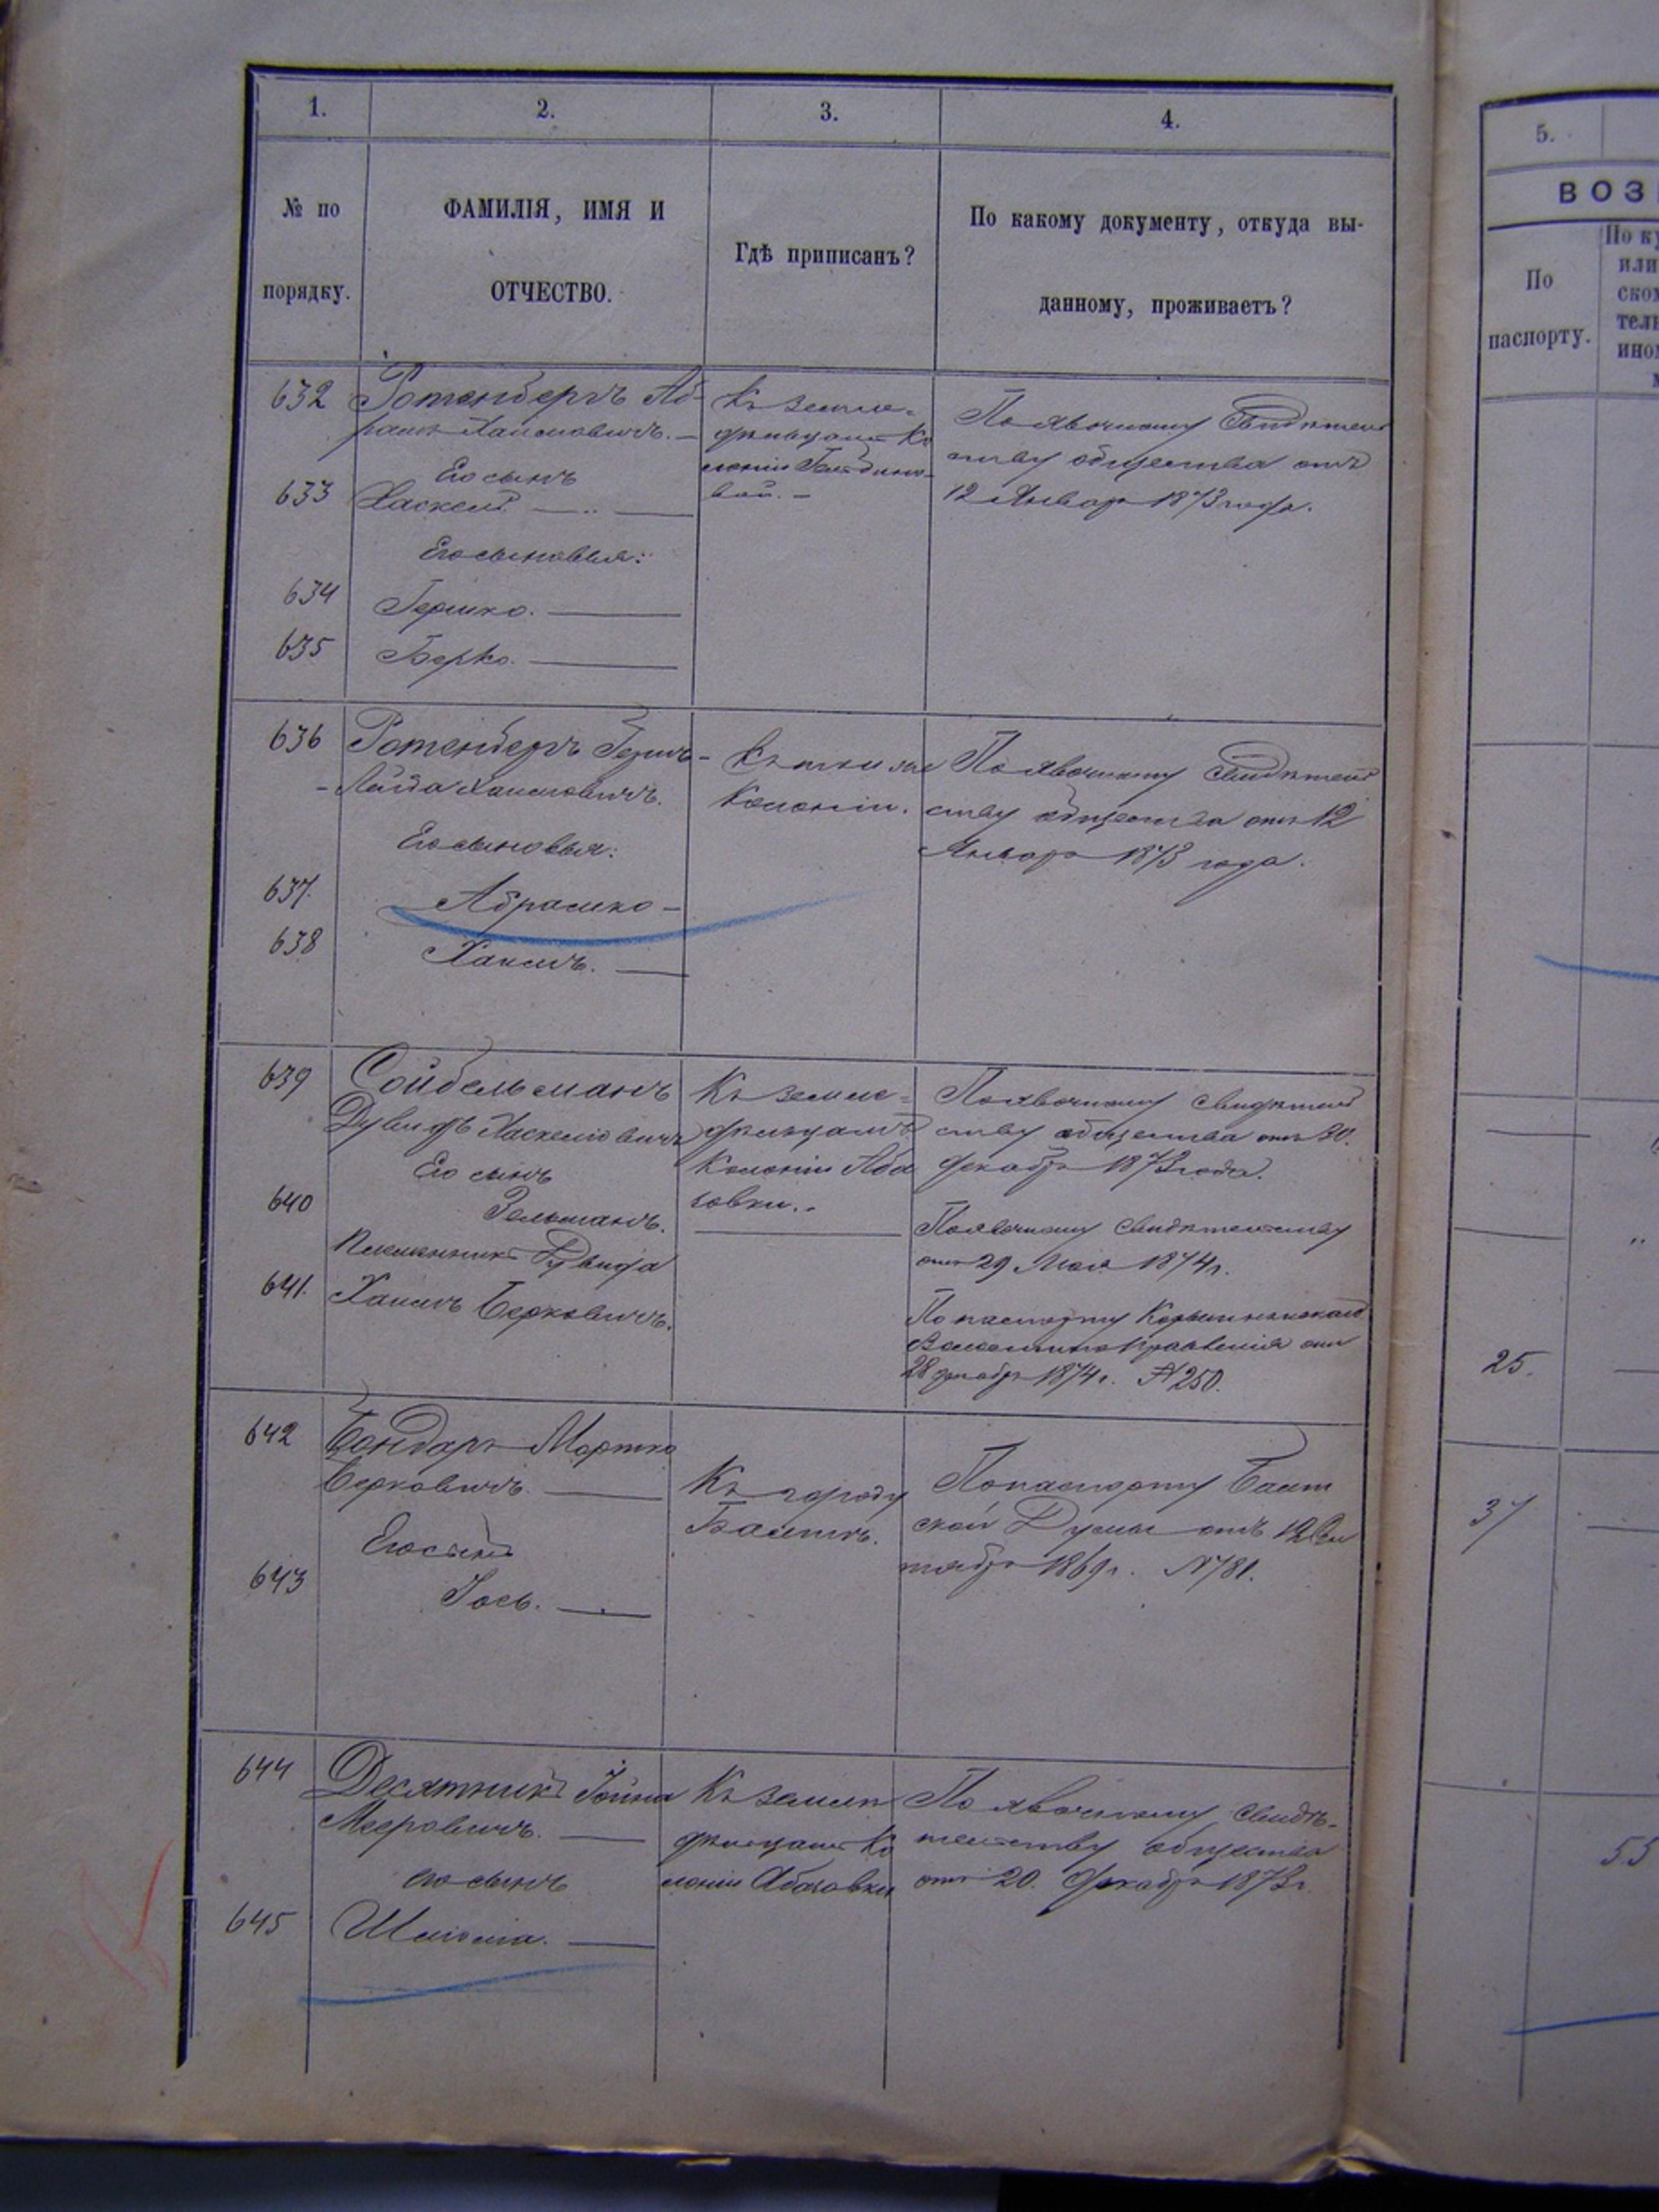 1.
2.
3.
4.
5.
№ по
порядку.
ФАМИЛІЯ, ИМЯ И
ОТЧЕСТВО.
Гдѣ приписанъ?
По какому документу, откуда вы-
данному, проживаетъ?
ВОЗ
По
паспорту.
По ку
или
ско
тель
ино
632
Ротенбергъ Аб-
рамъ Хаимовичъ. —
Къ земле-
дѣльцамъ Ко
лоніи
вой. —
По явочному Свидѣтель
ству общества отъ
12 Января 1873 года.
Его сынъ
633
Хаскель
Его сыновья:
634
Гершко.
635
Берко.
636
Ротенбергъ Герш-
-Лейба Хаимовичъ.
Къ той же
Колоніи.
По явочному Свидѣтель
ству общества отъ 12
Января 1873 года.
Его сыновья:
637.
Абрамко —
638
Хаимъ.
639
Сойбельманъ
Дувидъ Хаскеліовичъ
Къ земле-
дѣльцамъ
Колоніи Аба
зовки.
По явочному Свидѣтель
ству общества отъ 20.
Декабря 1873 года.
Его сынъ
640
Зельманъ.
По явочному Свидѣтельству
отъ 29 Мая 1874 г.
Племянникъ Дувида
641.
Хаимъ Берковичъ.
По паспорту
Волостного Правленія отъ
28 декабря 1874 г. № 250.
25.
642
Бондарь Мортко
Берковичъ.
Къ городу
Балтѣ.
По паспорту Балт
ской Думы отъ 12 Сен
тября 1869 г. № 781.
37
Его сынъ
643
Іось.
644
Десятникъ Іойна
Мееровичъ.
Къ землѣ
дѣльцамъ Ко
лоніи Абазовки
По явочному Свидѣ-
тельству общества
отъ 20. Декабря 1873 г.
55
его сынъ
645
Шліома.